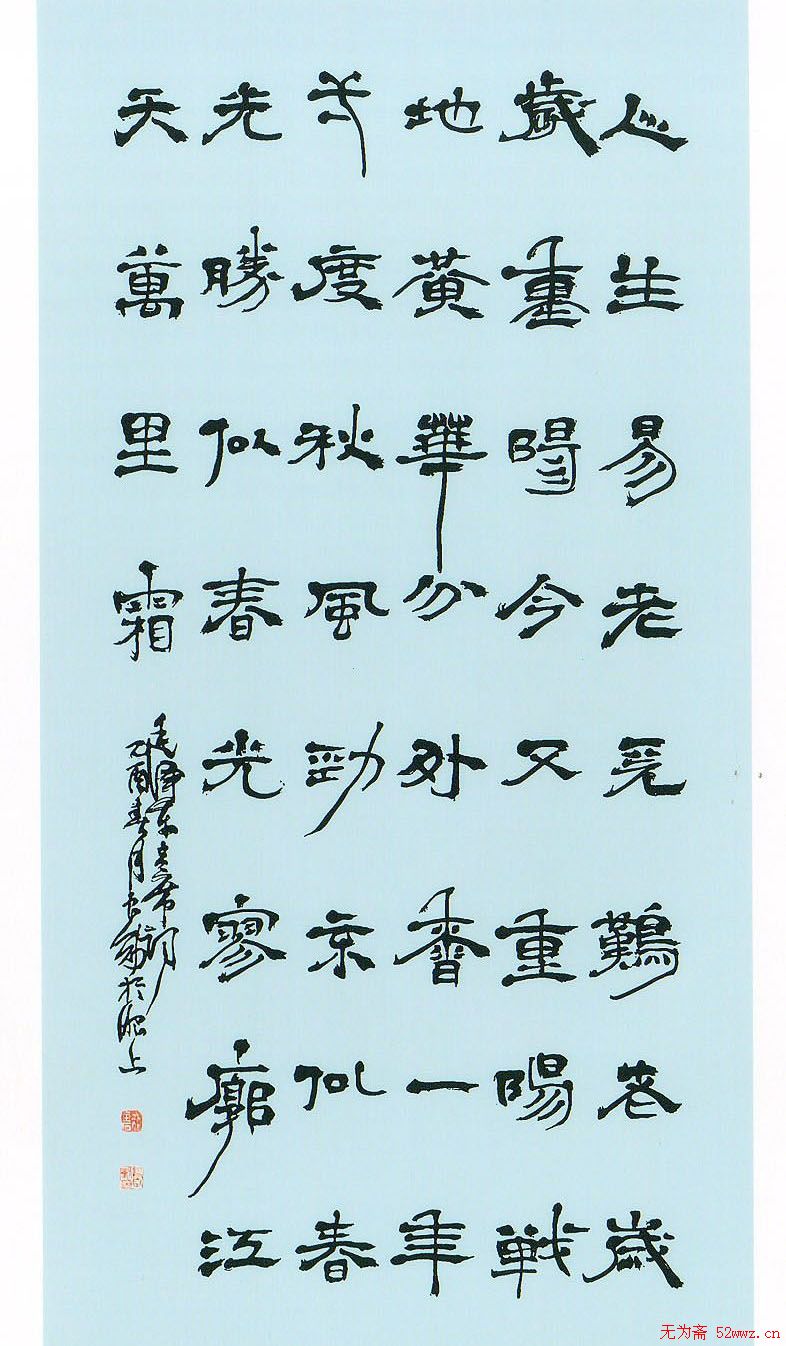 人生易老天難老歲
歲重陽今又重陽戰
地黃華分外香一年
一度秋風勁不似春
光勝似春光寥廓江
天萬里霜
毛澤東主席詞
乙酉春月於肥上
无为斋 52wwz.cn